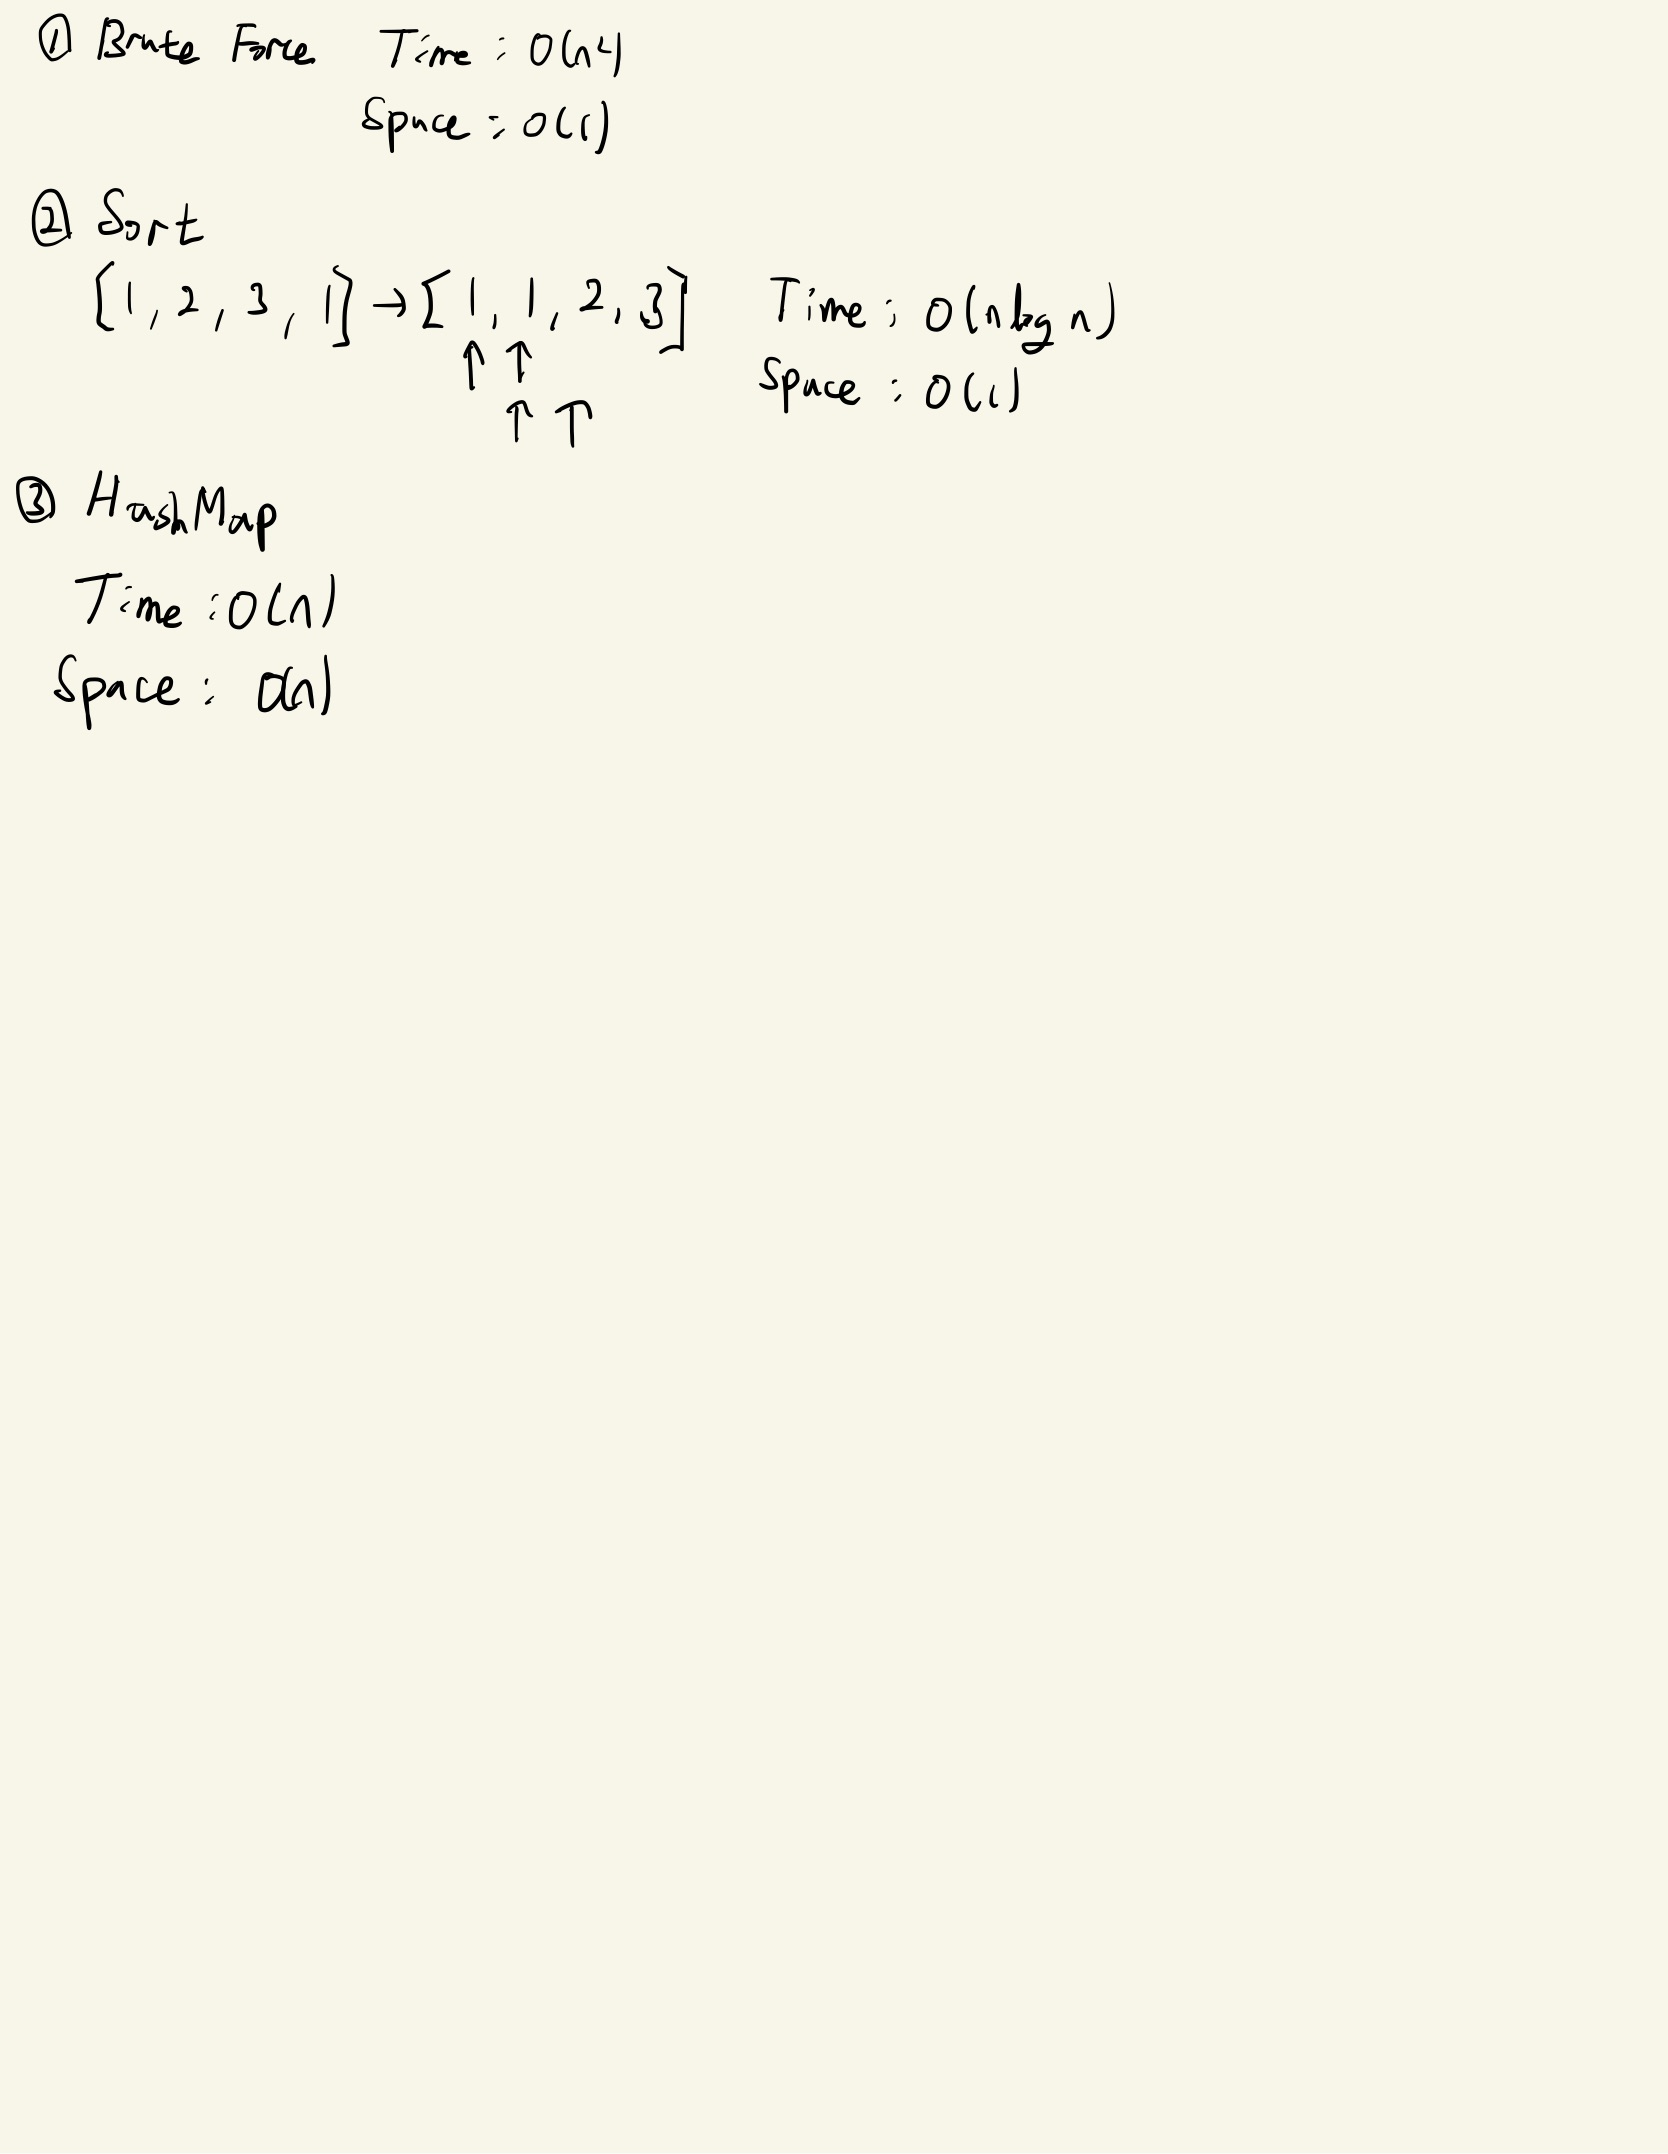 ① Brute Force Time : O(n²)
Space : O(1)
② Sort
[1, 2, 3, 1] → [1, 1, 2, 3] Time : O(n log n)
↑ ↑ Space : O(1)
↑ ↑
③ HashMap
Time : O(n)
Space : O(n)